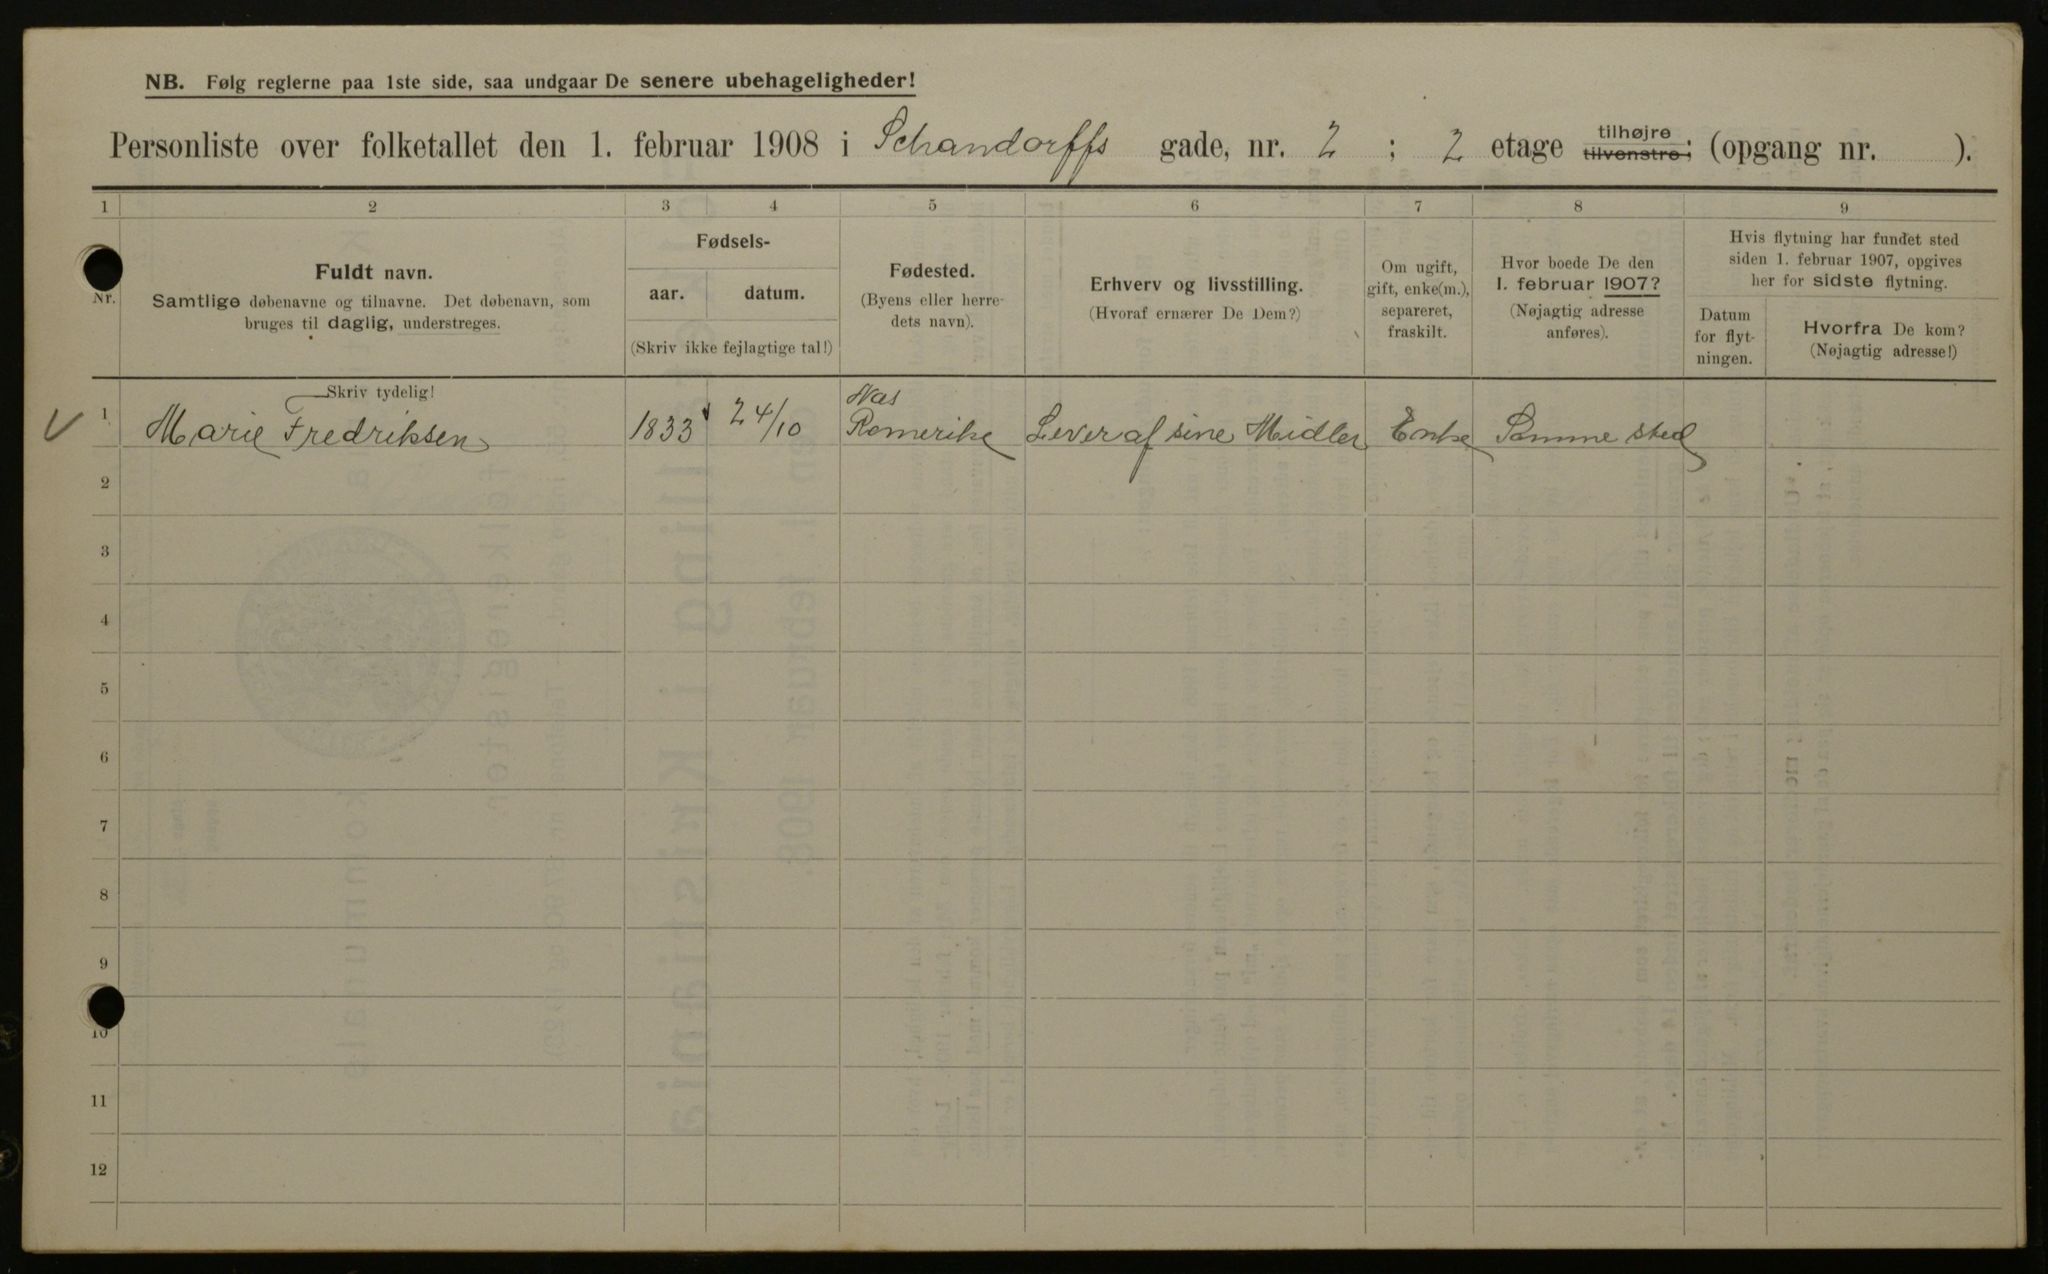 NB. Følg reglerne paa 1ste side, saa undgaar De senere ubehageligheder!
Personliste over folketallet den 1. februar 1908 i Schandorffs gade, nr. 2 ; 2 etage tilhøjre tilvenstre; (opgang nr. ).
1 2 3 4 5 6 7 8 9
Nr.
Fuldt navn.
Samtlige døbenavne og tilnavne. Det døbenavn, som
bruges til daglig, understreges.
Skriv tydelig!
Fødsels-
aar. datum.
(Skriv ikke fejlagtige tal!)
Fødested.
(Byens eller herre-
dets navn).
Erhverv og livsstilling.
(Hvoraf ernærer De Dem?)
Om ugift,
gift, enke(m.),
separeret,
fraskilt.
Hvor boede De den
1. februar 1907?
(Nøjagtig adresse
anføres).
Hvis flytning har fundet sted
siden 1. februar 1907, opgives
her for sidste flytning.
Datum
for flyt-
ningen.
Hvorfra De kom?
(Nøjagtig adresse!)
1 Marie Fredriksen 1833 24/10 Næs Romerike Lever af sine Midler Enke Samme sted
2
3
4
5
6
7
8
9
10
11
12